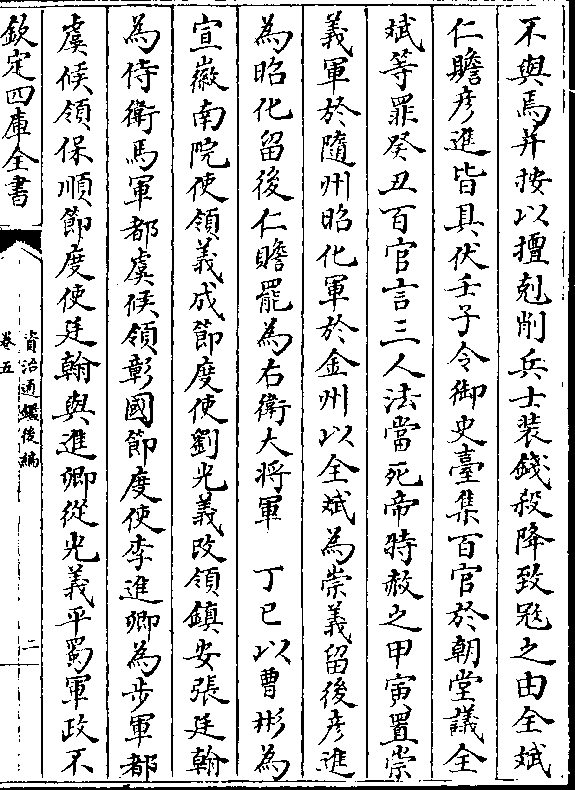 不與焉并按以擅剋削兵士装錢殺降致冦之由全斌
仁贍彦進皆具伏壬子令御史臺集百官於朝堂議全
斌等罪癸丑百官言三人法當死帝特赦之甲寅置崇
義軍於隨州昭化軍於金州以全斌為崇義留後彦進
為昭化留後仁贍罷為右衛大將軍　丁巳以曹彬為
宣徽南院使領義成節度使劉光義改領鎮安張廷翰
為侍衛馬軍都虞候領彰國節度使李進卿為步軍都
虞候領保順節度使廷翰與進卿從光義平蜀軍政不
欽定四庫全書
資治通鑑後編
卷五
二